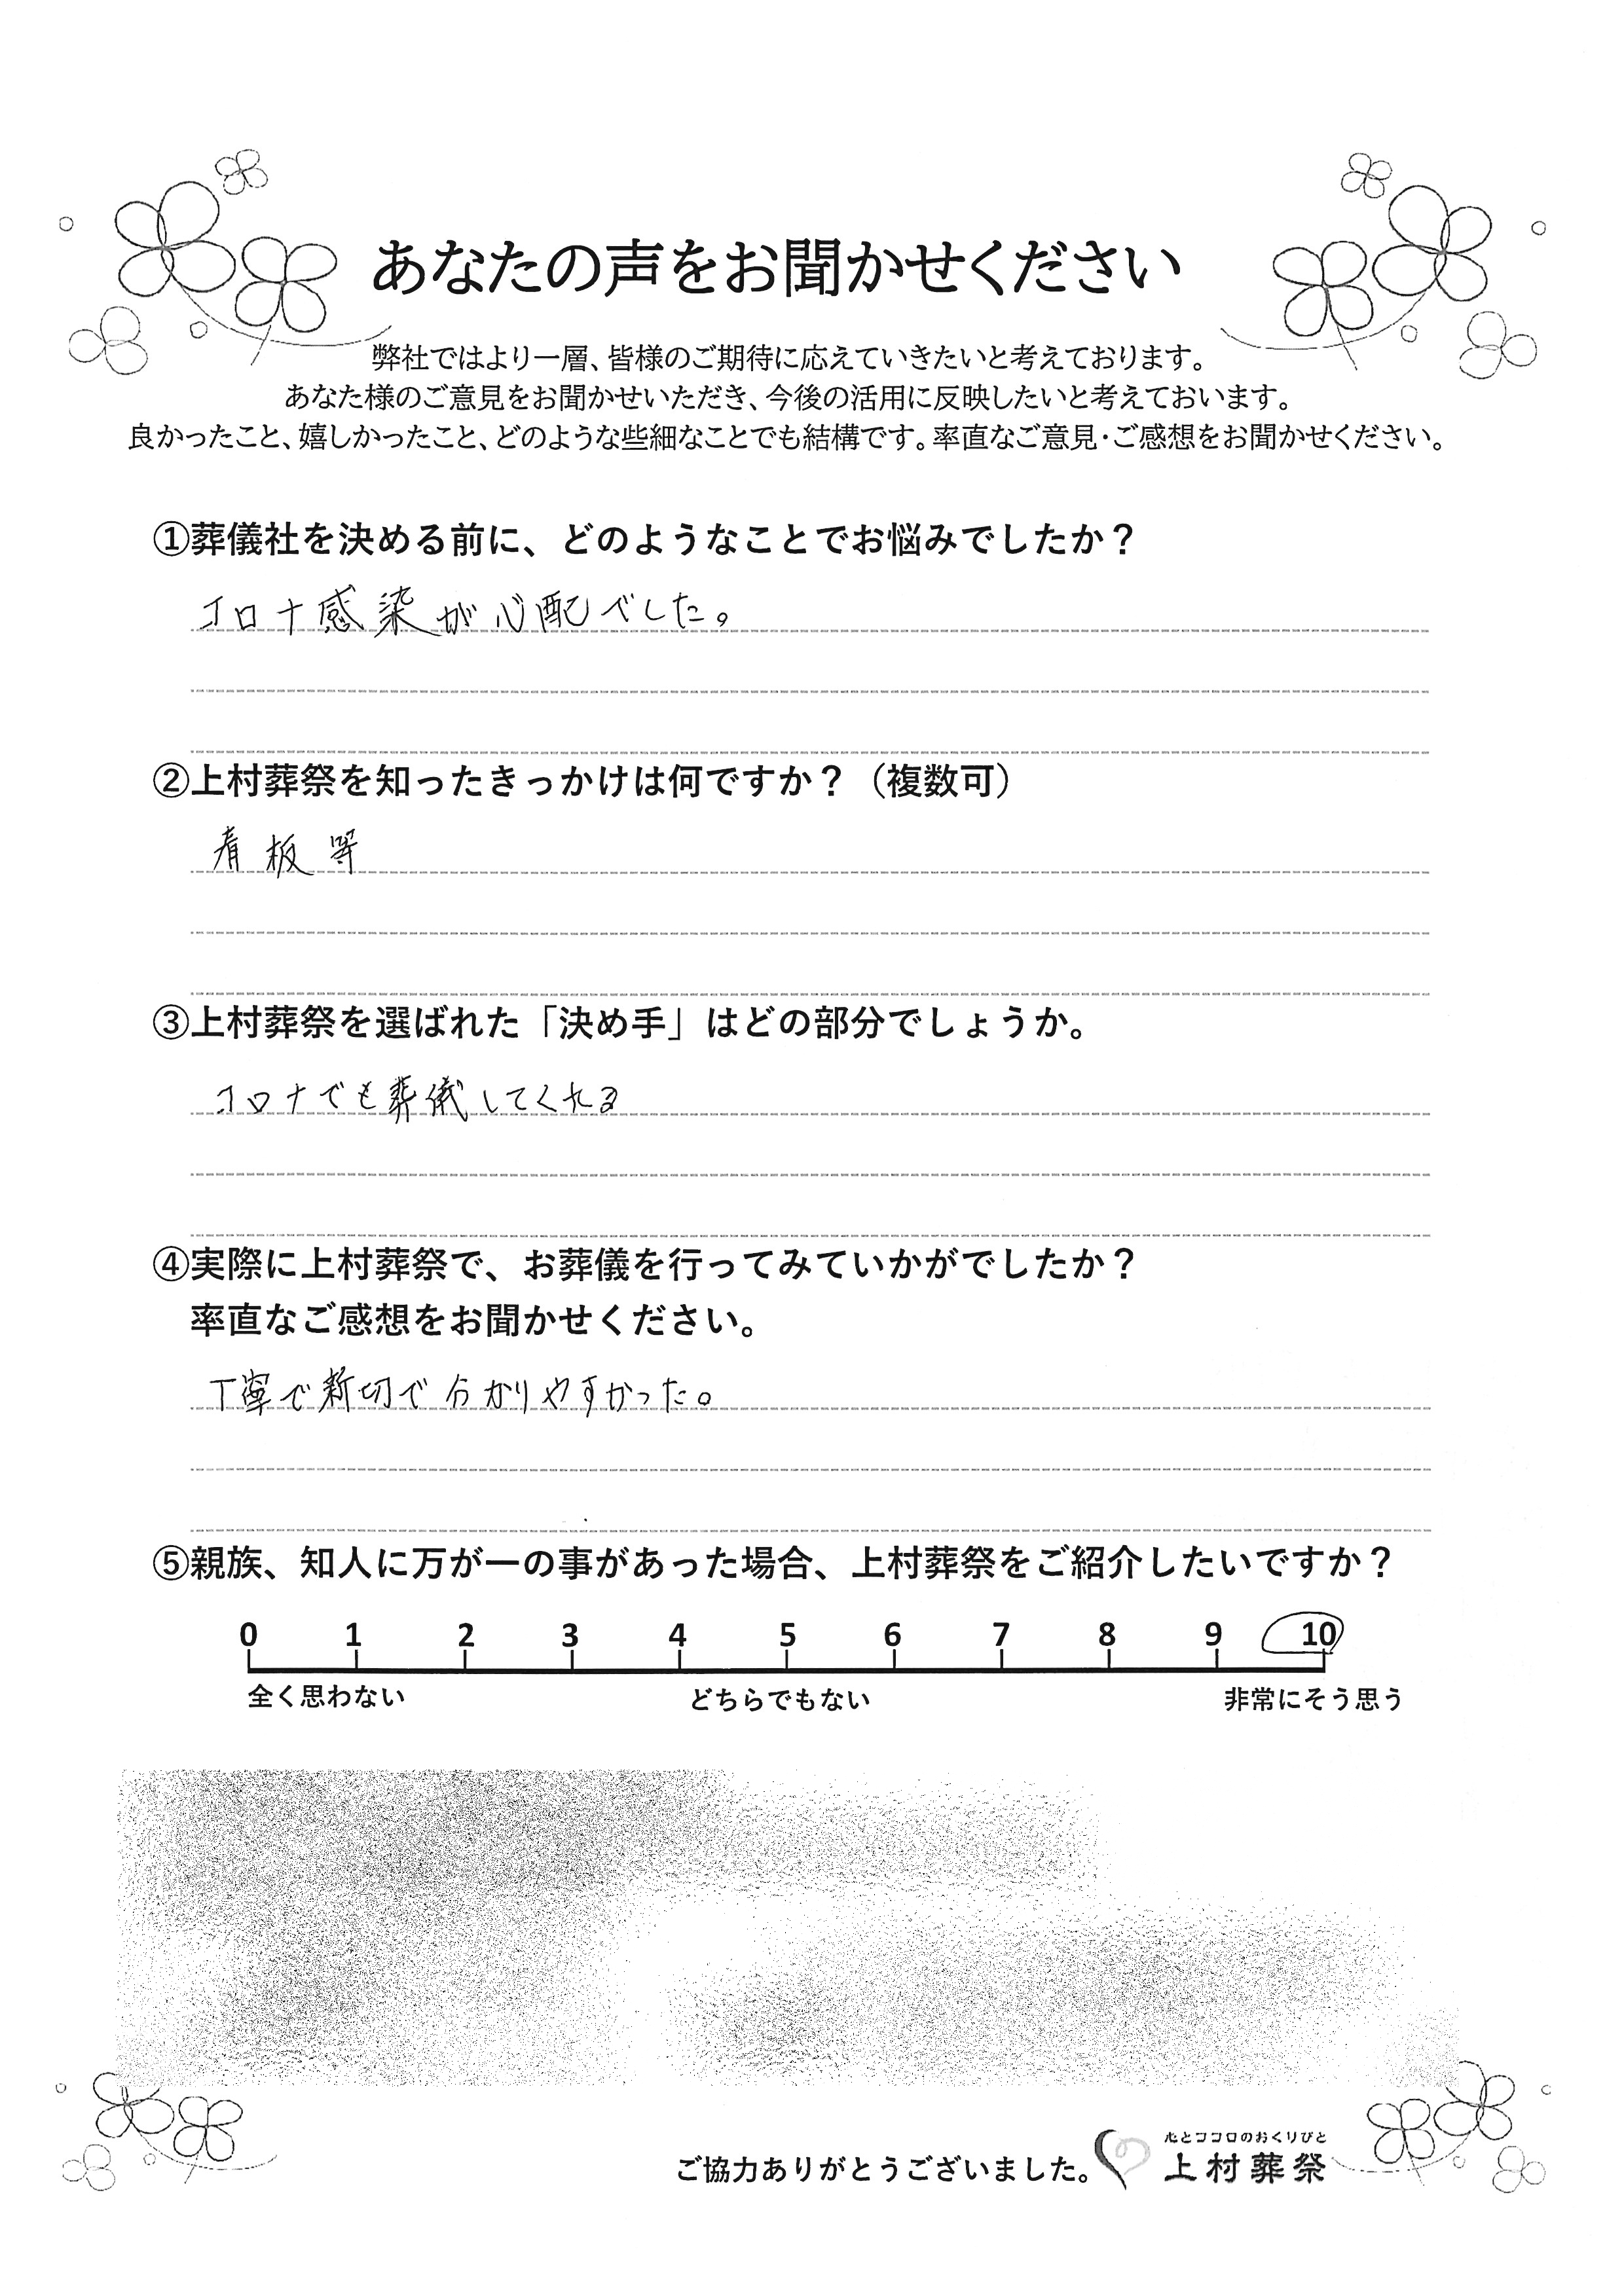 あなたの声をお聞かせください
弊社ではより一層、皆様のご期待に応えていきたいと考えております。
あなた様のご意見をお聞かせいただき、今後の活用に反映したいと考えておいます。
良かったこと、嬉しかったこと、どのような些細なことでも結構です。率直なご意見・ご感想をお聞かせください。
①葬儀社を決める前に、どのようなことでお悩みでしたか？
コロナ感染が心配でした。
②上村葬祭を知ったきっかけは何ですか？（複数可）
看板等
③上村葬祭を選ばれた「決め手」はどの部分でしょうか。
コロナでも葬儀してくれる
④実際に上村葬祭で、お葬儀を行ってみていかがでしたか？
率直なご感想をお聞かせください。
丁寧で親切で分かりやすかった。
⑤親族、知人に万が一の事があった場合、上村葬祭をご紹介したいですか？
0 1 2 3 4 5 6 7 8 9 10
全く思わない どちらでもない 非常にそう思う
心とココロのおくりびと
ご協力ありがとうございました。 上村葬祭